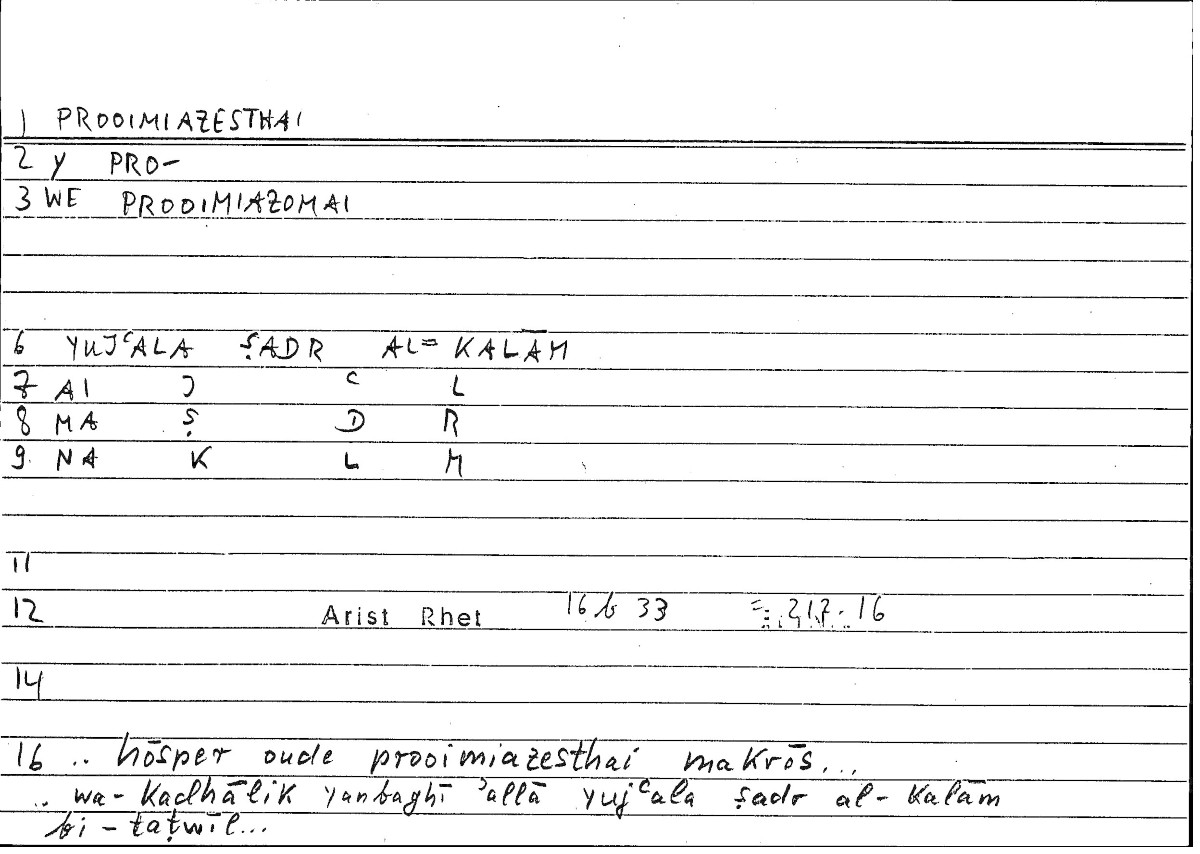 1 PROOIMIAZESTHAI
2 Y PRO-
3 WE PROOIMIAZOMAI
6 YUJʿALA ṢADR AL= KALĀM
7 AI J ʿ L
8 MA Ṣ D R
9. NA K L M
11
12 Arist Rhet 16 b 33 = 217.16
14
16 .. hōsper oude prooimiazesthai makrōs...
.. wa-Kadhālik yanbaghī ʾallā yujʿala ṣadr al-Kalām
bi-taṭwīl...